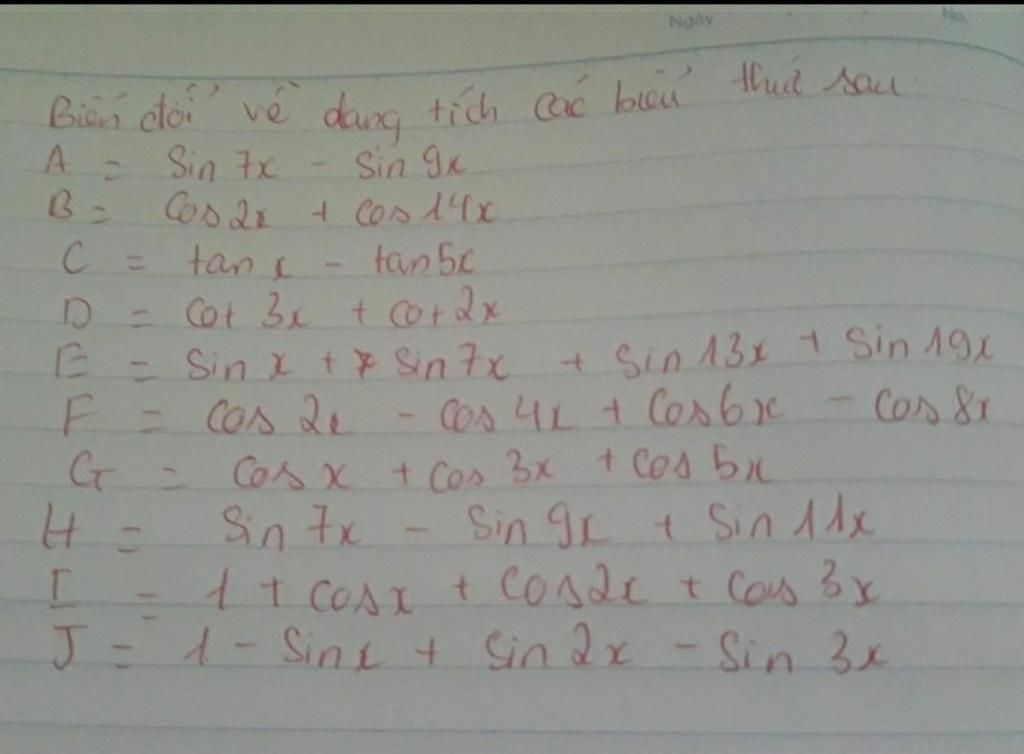 Ngày No.
Biến đổi về dạng tích các biểu thức sau
A = Sin 7x - Sin 9x
B = Cos 2x + cos 14x
C = tan x - tan 5x
D = Cot 3x + Cot 2x
E = Sin x + Sin 7x + Sin 13x + Sin 19x
F = Cos 2x - Cos 4x + Cos 6x - Cos 8x
G = Cos x + Cos 3x + Cos 5x
H = Sin 7x - Sin 9x + Sin 11x
I = 1 + Cos x + Cos 2x + Cos 3x
J = 1 - Sin x + Sin 2x - Sin 3x